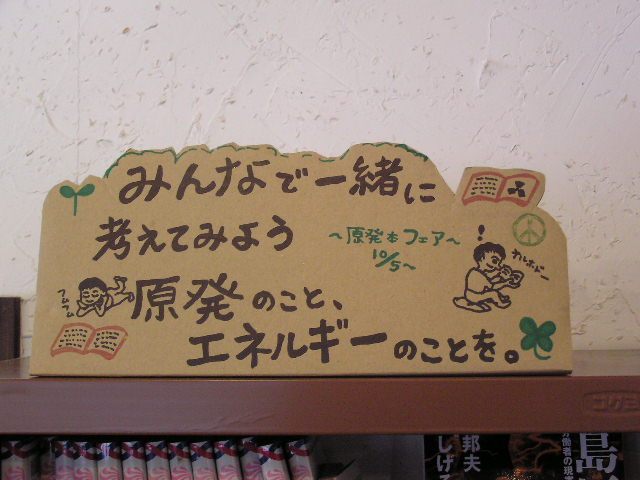 みんなで一緒に
考えてみよう
～原発本フェア～
10/5～
原発のこと、
エネルギーのことを。
フムフム
!
コクヨ
邦夫
しげる
労働者の現実
島